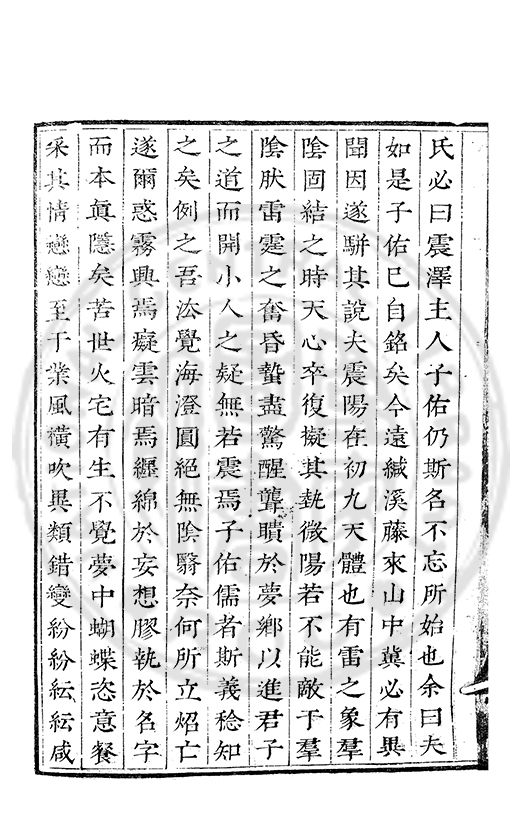 氏必曰震澤主人子佑仍斯名不忘所始也余曰夫
如是子佑已自銘矣今遠緘溪藤來山中冀必有異
聞因遂駢其說夫震陽在初九天體也有雷之象羣
陰固結之時天心卒復擬其埶微陽若不能敵于羣
陰肰雷霆之奮昏蟄盡驚醒聾聵於夢鄉以進君子
之道而開小人之疑無若震焉子佑儒者斯義稔知
之矣例之吾㳒覺海澄圓絕無陰翳奈何所立炤亡
遂爾惑霧興焉癡雲暗焉纒綿於妄想膠執於名字
而本眞隱矣苦世火宅有生不覺夢中蝴蝶恣意餐
采其情戀戀至于業風橫吹異類錯變紛紛紜紜咸